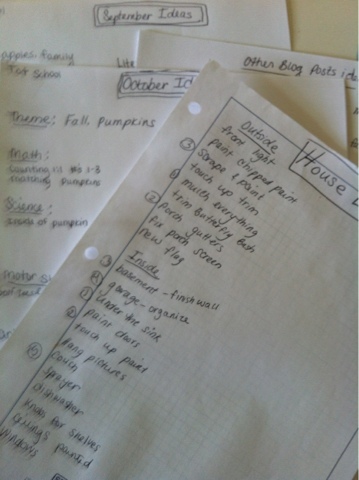 September Ideas
apples, family
Lite
Other Blog Posts
Tot School
October Id
Theme: Fall, Pumpkins
Math:
counting 1-3
matching pumpkins
Science:
inside of pumpkin
Motor
House
Outside
front light
③ paint chipped paint
Scrape & paint
touch up trim
mulch everything
trim butterfly bush
② porch gutters
fix porch screen
new flag
Inside
basement - finish wall
garage - organize
under the sink
paint chairs
touch up paint
hang pictures
couch
sprayer
dishwasher
knobs for shelves
ceilings painted
windows